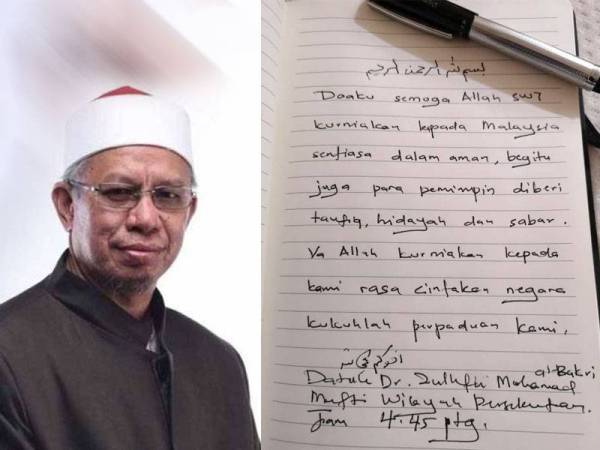 بسم الله الرحمن الرحيم
Doaku semoga Allah swT
kurniakan kepada Malaysia
sentiasa dalam aman, begitu
juga para pemimpin diberi
taufiq, hidayah dan sabar.
Ya Allah kurniakan kepada
kami rasa cintakan negara
kukuhlah perpaduan kami.
Datuk Dr. Zulkifli Mohamad al-Bakri
Mufti Wilayah Persekutuan.
Jam 4.45 ptg.